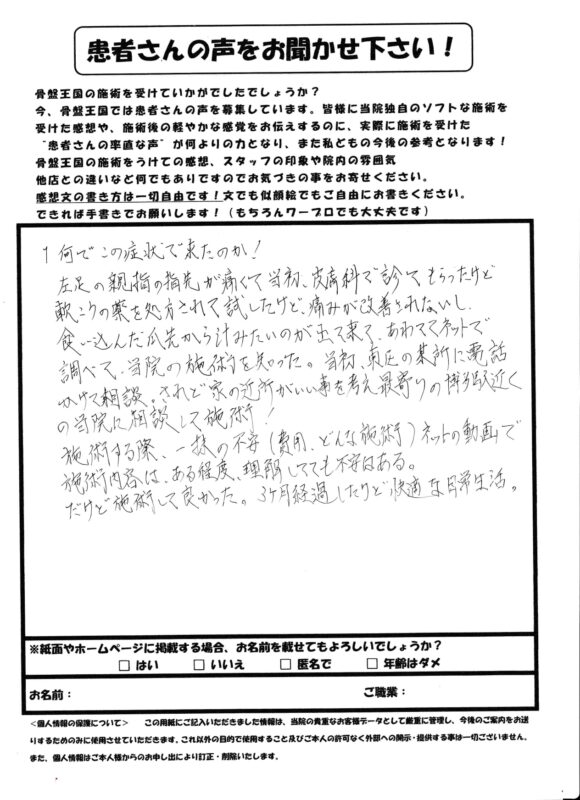 患者さんの声をお聞かせ下さい！
骨盤王国の施術を受けていかがでしたでしょうか？
今、骨盤王国では患者さんの声を募集しています。皆様に当院独自のソフトな施術を
受けた感想や、施術後の軽やかな感覚をお伝えするのに、実際に施術を受けた
“患者さんの率直な声”が何よりの力となり、また私どもの今後の参考となります！
骨盤王国の施術をうけての感想、スタッフの印象や院内の雰囲気
他店との違いなど何でもありですのでお気づきの事をお寄せください。
感想文の書き方は一切自由です！文でも似顔絵でもご自由にお書きください。
できれば手書きでお願いします！（もちろんワープロでも大丈夫です）
1 何でこの症状で来たのか！
左足の親指の指先が痛くて当初、皮膚科で診てもらったけど
軟こうの薬を処方されて試したけど、痛みが改善されないし、
食い込んだ爪先から汁みたいのが出て来て、あわててネットで
調べて、当院の施術を知った。当初、東区の某所に電話
かけて相談。されど家の近所がいい事を考え最寄りの博多駅近く
の当院に相談して施術！
施術する際、一抹の不安（費用、どんな施術）ネットの動画で
施術内容は、ある程度、理解してても不安はある。
だけど施術して良かった。3ヶ月経過したけど快適な日常生活。
※紙面やホームページに掲載する場合、お名前を載せてもよろしいでしょうか？
□ はい □ いいえ □ 匿名で □ 年齢はダメ
お名前： ご職業：
＜個人情報の保護について＞ この用紙にご記入いただきました情報は、当院の貴重なお客様データとして厳重に管理し、今後のご案内をお送
りするためのみに使用させていただきます。これ以外の目的で使用すること及びご本人の許可なく外部への開示・提供する事は一切ございません。
また、個人情報はご本人様からのお申し出により訂正・削除いたします。